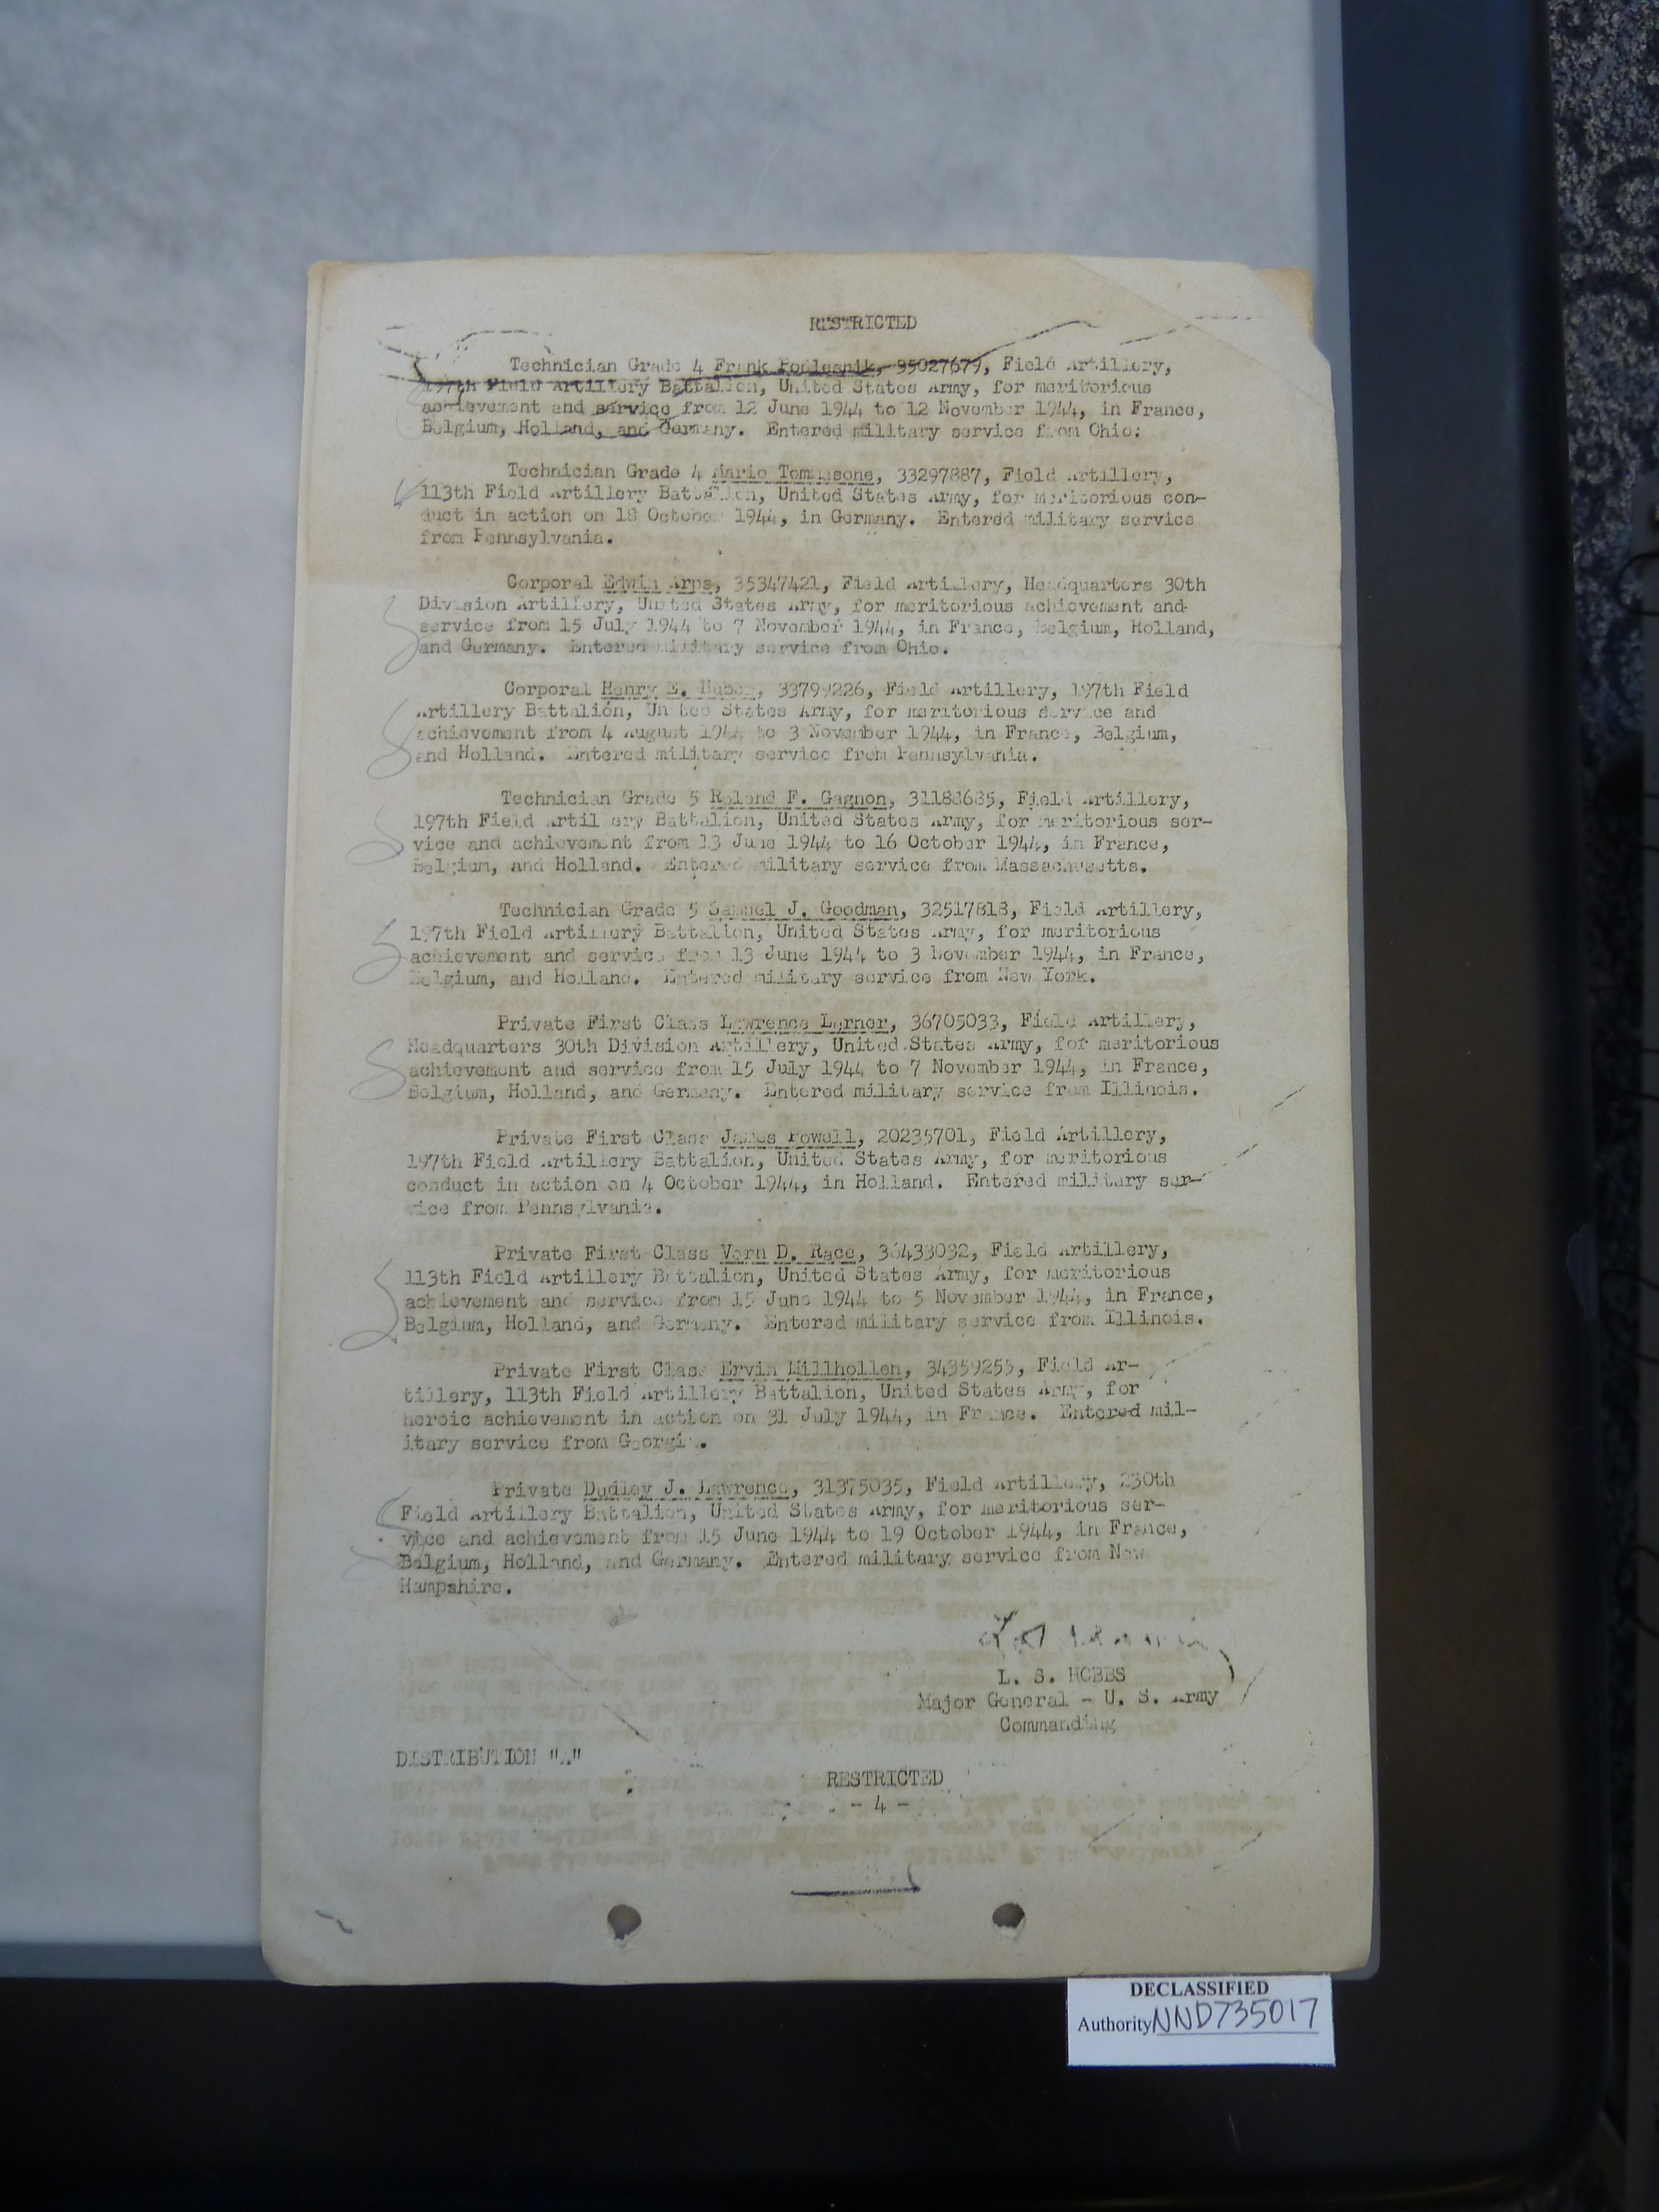 RESTRICTED
Technician Grade 4 Frank Podlesnik, 35027679, Field Artillery,
197th Field Artillery Battalion, United States Army, for meritorious
achievement and service from 12 June 1944 to 12 November 1944, in France,
Belgium, Holland, and Germany. Entered military service from Ohio.
Technician Grade 4 Mario Tommasone, 33297887, Field Artillery,
113th Field Artillery Battalion, United States Army, for meritorious con-
duct in action on 18 October 1944, in Germany. Entered military service
from Pennsylvania.
Corporal Edwin Arps, 35347421, Field Artillery, Headquarters 30th
Division Artillery, United States Army, for meritorious achievement and
service from 15 July 1944 to 7 November 1944, in France, Belgium, Holland,
and Germany. Entered military service from Ohio.
Corporal Henry E. Huber, 33799226, Field Artillery, 197th Field
Artillery Battalion, United States Army, for meritorious service and
achievement from 4 August 1944 to 3 November 1944, in France, Belgium,
and Holland. Entered military service from Pennsylvania.
Technician Grade 5 Roland F. Gagnon, 31188685, Field Artillery,
197th Field Artillery Battalion, United States Army, for meritorious ser-
vice and achievement from 13 June 1944 to 16 October 1944, in France,
Belgium, and Holland. Entered military service from Massachusetts.
Technician Grade 5 Samuel J. Goodman, 32517818, Field Artillery,
197th Field Artillery Battalion, United States Army, for meritorious
achievement and service from 13 June 1944 to 3 November 1944, in France,
Belgium, and Holland. Entered military service from New York.
Private First Class Lawrence Lerner, 36705033, Field Artillery,
Headquarters 30th Division Artillery, United States Army, for meritorious
achievement and service from 15 July 1944 to 7 November 1944, in France,
Belgium, Holland, and Germany. Entered military service from Illinois.
Private First Class James Powell, 20235701, Field Artillery,
197th Field Artillery Battalion, United States Army, for meritorious
conduct in action on 4 October 1944, in Holland. Entered military ser-
vice from Pennsylvania.
Private First Class Vern D. Race, 36433032, Field Artillery,
113th Field Artillery Battalion, United States Army, for meritorious
achievement and service from 15 June 1944 to 5 November 1944, in France,
Belgium, Holland, and Germany. Entered military service from Illinois.
Private First Class Ervin Millhollen, 34359255, Field Ar-
tillery, 113th Field Artillery Battalion, United States Army, for
heroic achievement in action on 31 July 1944, in France. Entered mil-
itary service from Georgia.
Private Dudley J. Lawrence, 31375035, Field Artillery, 230th
Field Artillery Battalion, United States Army, for meritorious ser-
vice and achievement from 15 June 1944 to 19 October 1944, in France,
Belgium, Holland, and Germany. Entered military service from New
Hampshire.
L. S. HOBBS
Major General - U. S. Army
Commanding
DISTRIBUTION "A"
RESTRICTED
- 4 -
DECLASSIFIED
Authority NND735017